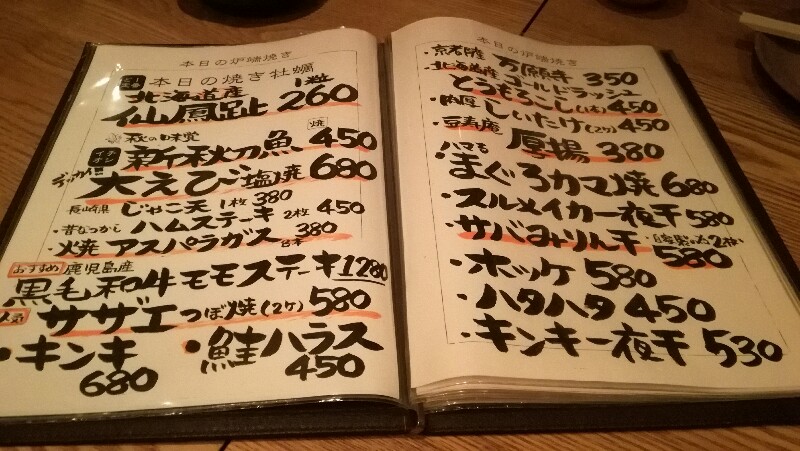 本日の炉端焼き
本日の焼き牡蠣
北海道産 1粒
仙鳳趾 260
秋の味覚 焼
新秋刀魚 450
デッカイ!! 大えび塩焼 680
長崎県 じゃこ天 1枚 380
・昔なつかし ハムステーキ 2枚 450
・焼アスパラガス 380
おすすめ 鹿児島産
黒毛和牛モモステーキ 1280
人気 サザエつぼ焼(2ケ) 580
・キンキ 680
・鮭ハラス 450
本日の炉端焼き
・京都産 万願寺 350
・北海道産 ゴールドラッシュ
とうもろこし(1本) 450
・肉厚 しいたけ(2ケ) 450
・豆寿庵 厚揚 380
ハマる
まぐろカマ焼 680
・スルメイカ一夜干 580
・サバみりん干 2枚 580
・ホッケ 580
・ハタハタ 450
・キンキ一夜干 530